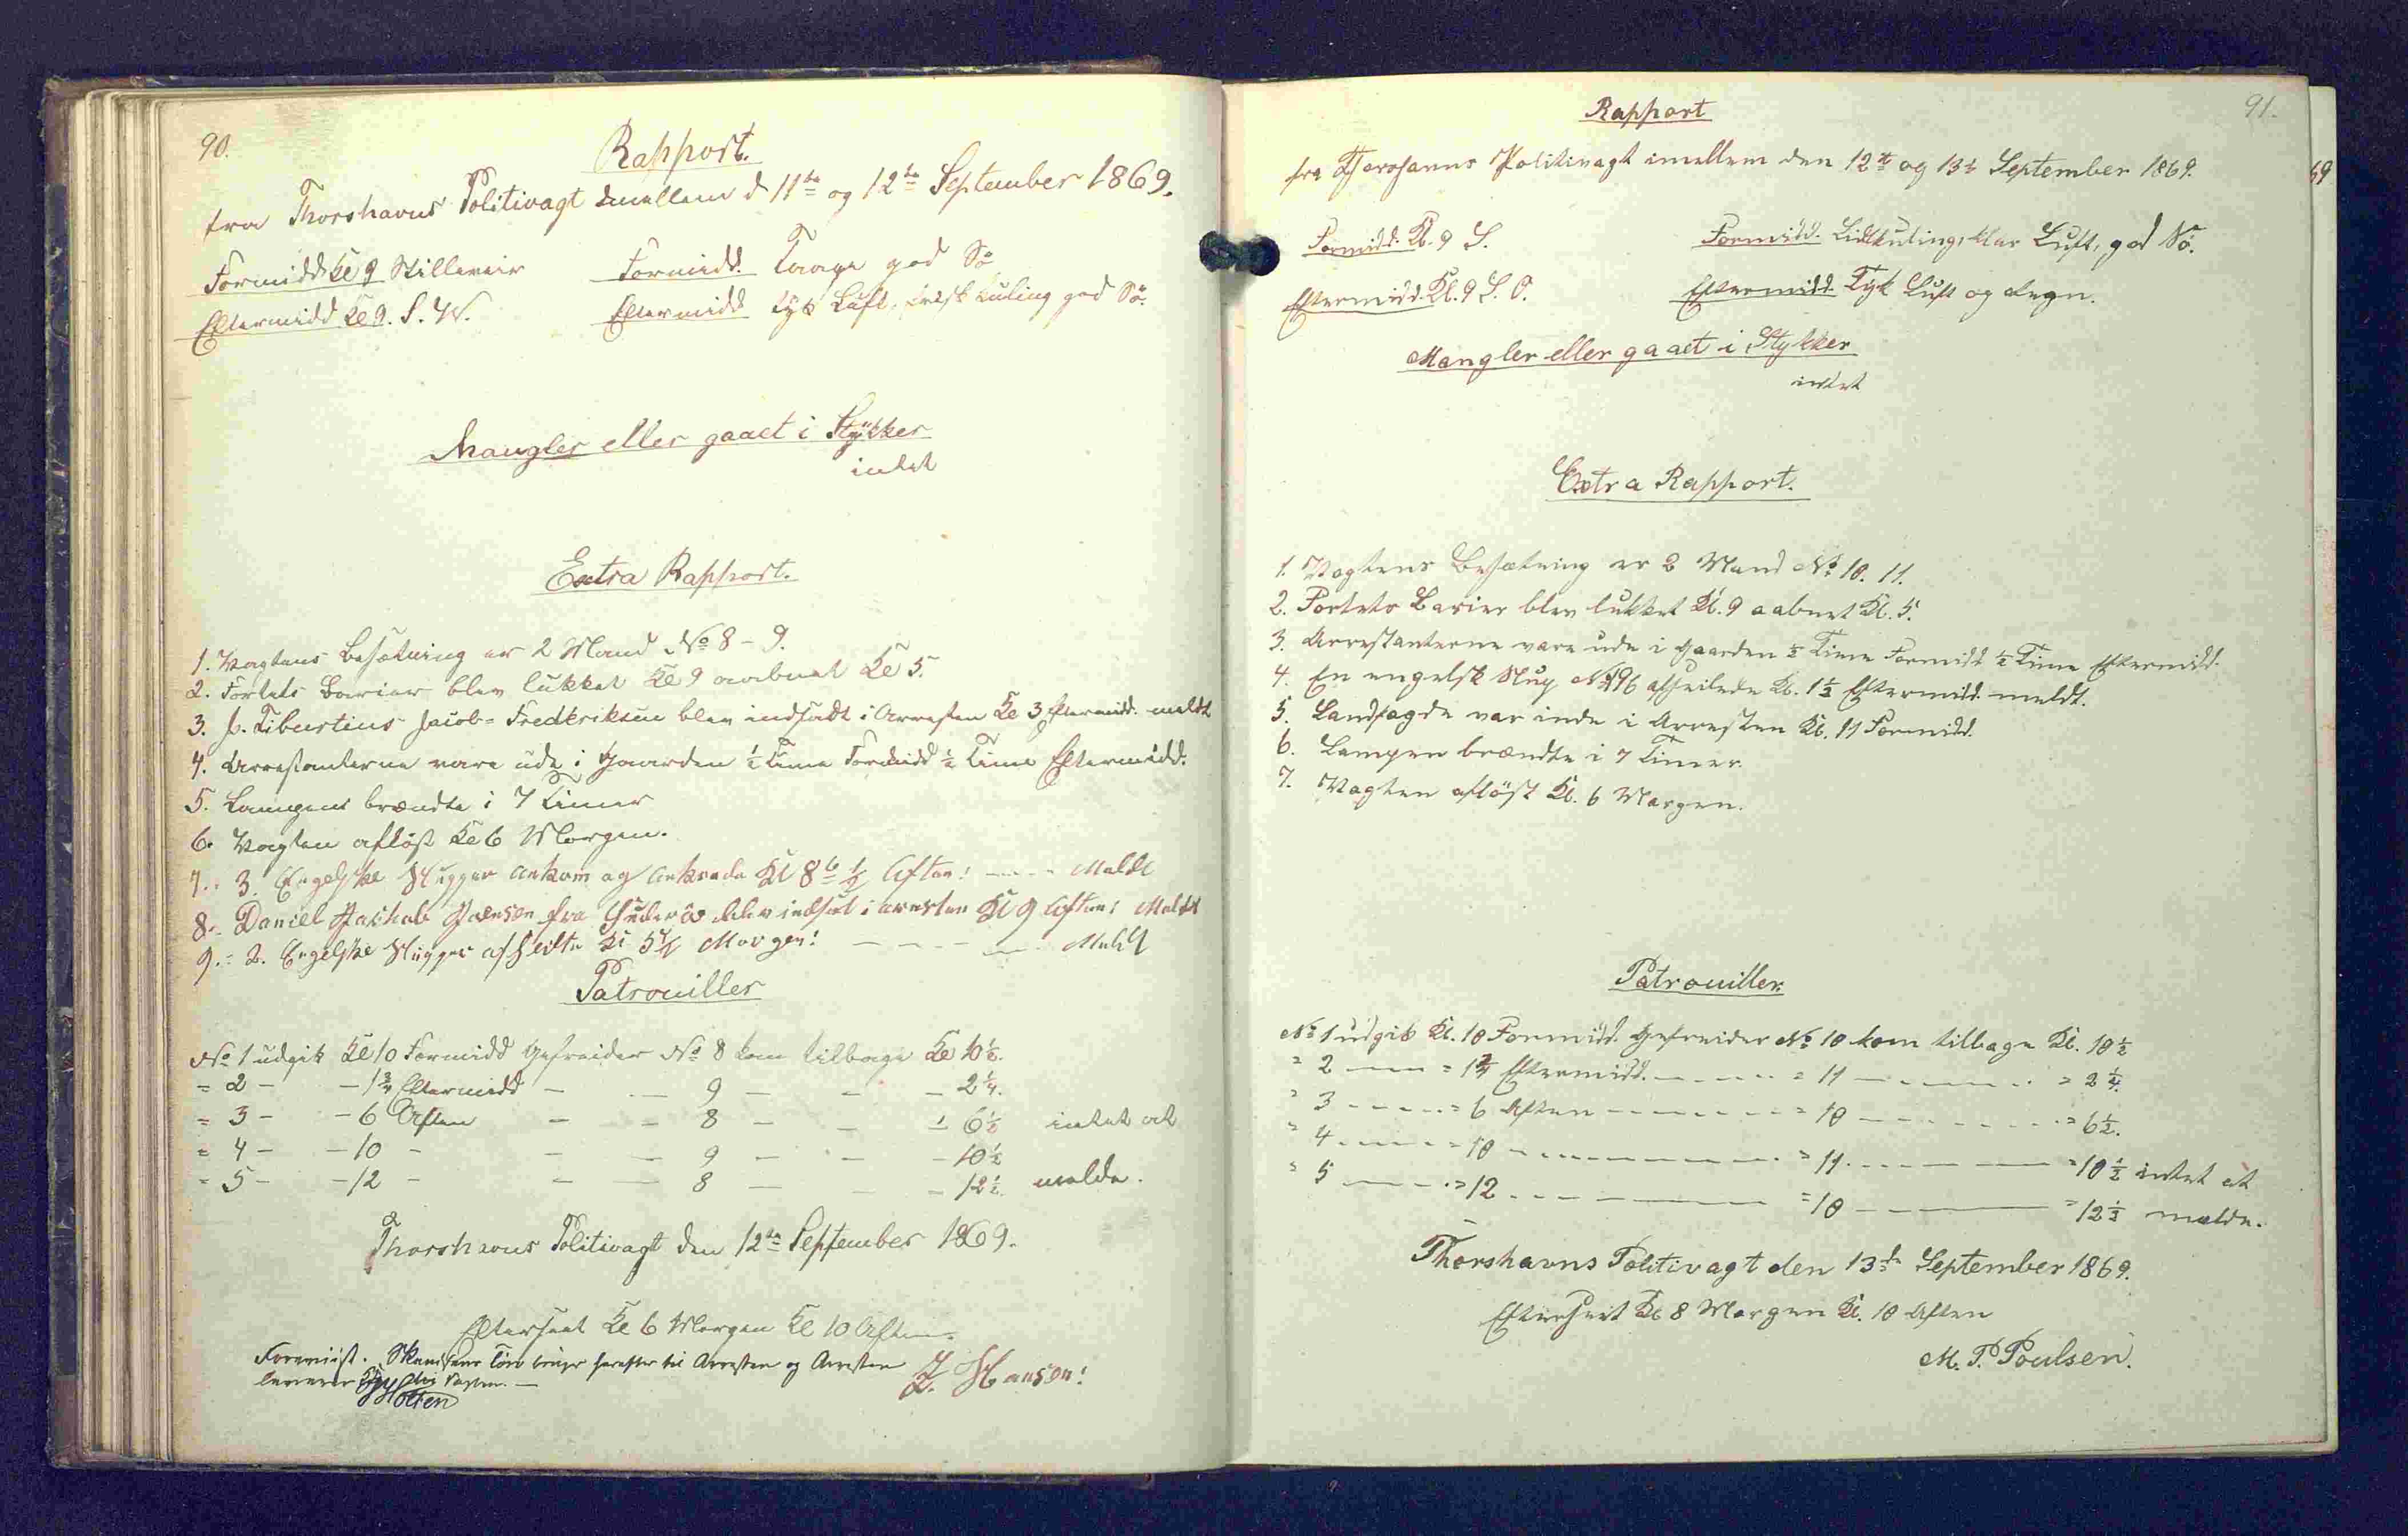 90.
Rapport.
fra Thorshavns Politivagt imellem d 11te og 12te September 1869.
Formidd Kl 9 Stilleveir Formidd. Taage god Sö
Eftermidd Kl 9. S. W. Eftermidd tyk Luft, frisk Kuling god Sö.
Mangler eller gaaet i Stykker
intet
Extra Rapport.
1. Vagtens Besætning er 2 Mand No 8 - 9.
2. Fortets Barier blev lukket Kl 9 aabnet Kl 5.
3. J. Tiburtius Jacob Fredriksen blev indsadt i Arresten Kl 3 Eftermidd. meldt
4. Arrestanterne vare ude i Gaarden ½ Time Formidd ½ Time Eftermidd.
5. Lampen brændte i 7 Timer
6. Vagten aflöst Kl 6 Morgen.
7. 3. Engelske Slupper ankom og ankrede Kl 8 ½ Aften! Meldt
8. Daniel Jaensen fra Suderö blev indsat i aresten Kl 9 Aften! Meldt
9. 2. Engelske Slupper afseilte Kl Morgen! Meldt
Patrouiller
No 1 udgik Kl 10 Formidd Gefreider No 8 kom tilbage Kl 10½.
= 2 - - 1¾ Eftermidd - - 9 - - - 2¼.
= 3 - - 6 Aften - - 8 - - - 6½ intet at
= 4 - - 10 - - - 9 - - - 10½
= 5 - - 12 - - - 8 - - - 12½. melde.
Thorshavns Politivagt den 12te September 1869.
Efterseet Kl 6 Morgen Kl 10 Aften.
Skandsens herefter til Arresten og Arresten
leverer Vagten. —
Holten
J. Hansen!
91.
Rapport
fra Thorshavns Politivagt imellem den 12te og 13de September 1869.
Formidd. Kl. 9 S. Formidd. Lidt Kuling, klar Luft, god Sö.
Eftermidd. Kl. 9 S. O. Eftermidd. Tyk Luft og Regn.
Mangler eller gaaet i Stykker
intet
Extra Rapport.
1. Vagtens Besætning er 2 Mand No 10. 11.
2. Fortets Barier blev lukket Kl. 9 aabnet Kl. 5.
3. Arrestanterne vare ude i Gaarden ½ Time Formidd ½ Time Eftermidd.
4. En engelsk Slup No 196 afseilede Kl. 1½ Eftermidd. meldt.
5. Landfogden var inde i Arresten Kl. 11 Formidd.
6. Lampen brændte i 7 Timer.
7. Vagten aflöst Kl. 6 Morgen.
Patrouiller.
No 1 udgik Kl. 10 Formidd. Gefreider No 10 kom tilbage Kl. 10½
" 2 — = 1¾ Eftermidd. — = 11 — = 2¼.
" 3 — = 6 Aften — = 10 — = 6½.
" 4 — = 10 — = 11 — = 10½ intet at
" 5 — = 12 — = 10 — = 12½ melde.
Thorshavns Politivagt den 13de September 1869.
Efterseet Kl 8 Morgen Kl. 10 Aften
M. P. Poulsen.
69